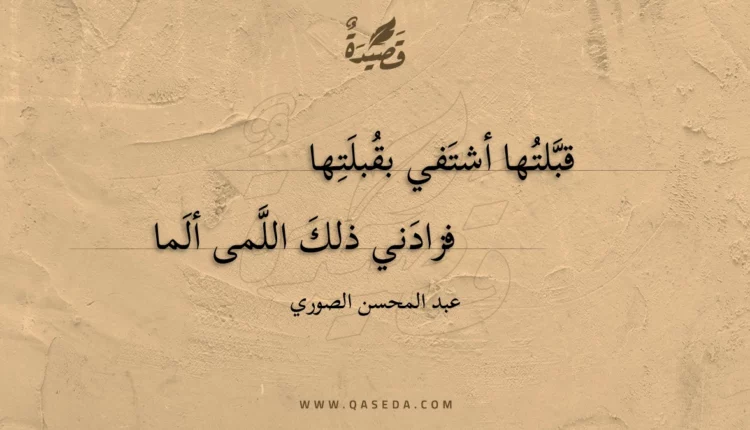 قَصِيدَةٌ
قبَّلتُها أشتَفي بقُبلَتِها
فزادَني ذلكَ اللَّمى ألَما
عبد المحسن الصوري
WWW.QASEDA.COM